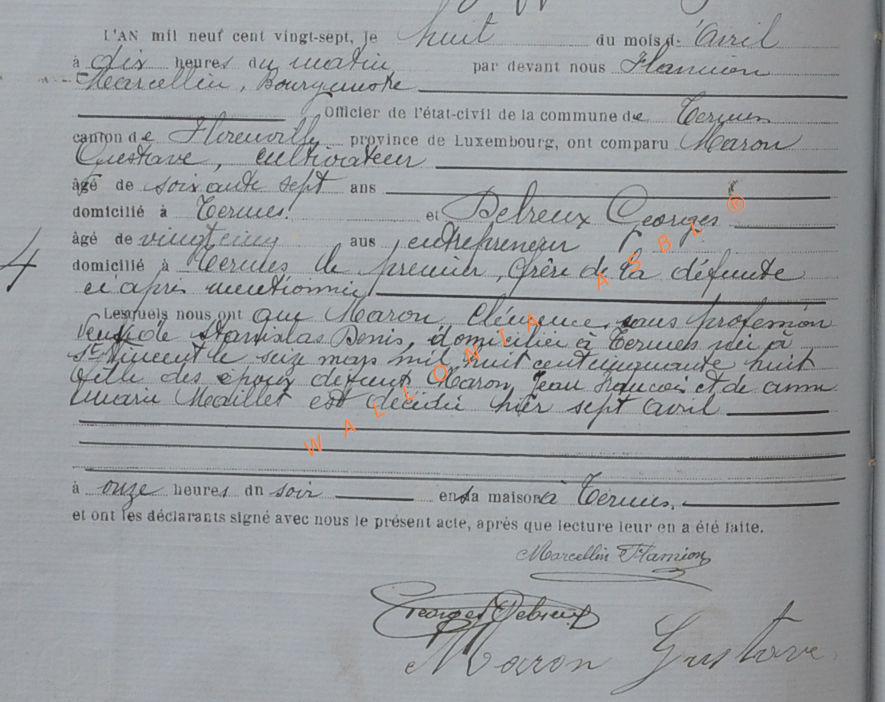 L'AN mil neuf cent vingt-sept, le huit du mois d'Avril
à dix heures du matin par devant nous Flamion
Marcellin, Bourgmestre
Officier de l'état-civil de la commune de Termes
canton de Florenville province de Luxembourg, ont comparu Maron
Gustave, cultivateur
âgé de soixante sept ans
domicilié à Termes. et Debreux Georges
âgé de vingt cinq ans entrepreneur
domicilié à Termes le premier, frère de la défunte
ci après mentionnée
Lesquels nous ont que Maron, Clémence, sans profession
Veuve de Stanislas Denis, domiciliée à Termes née à
St Vincent le seize mars mil huit cent cinquante huit
fille des époux défunts Maron, Jean François et de anne
marie Maillet est décédée hier sept avril
à onze heures du soir en sa maison à Termes.
et ont les déclarants signé avec nous le présent acte, après que lecture leur en a été faite.
Marcellin Flamion
Georges Debreux
Maron Gustave
4
WALLONIA ASBL ©